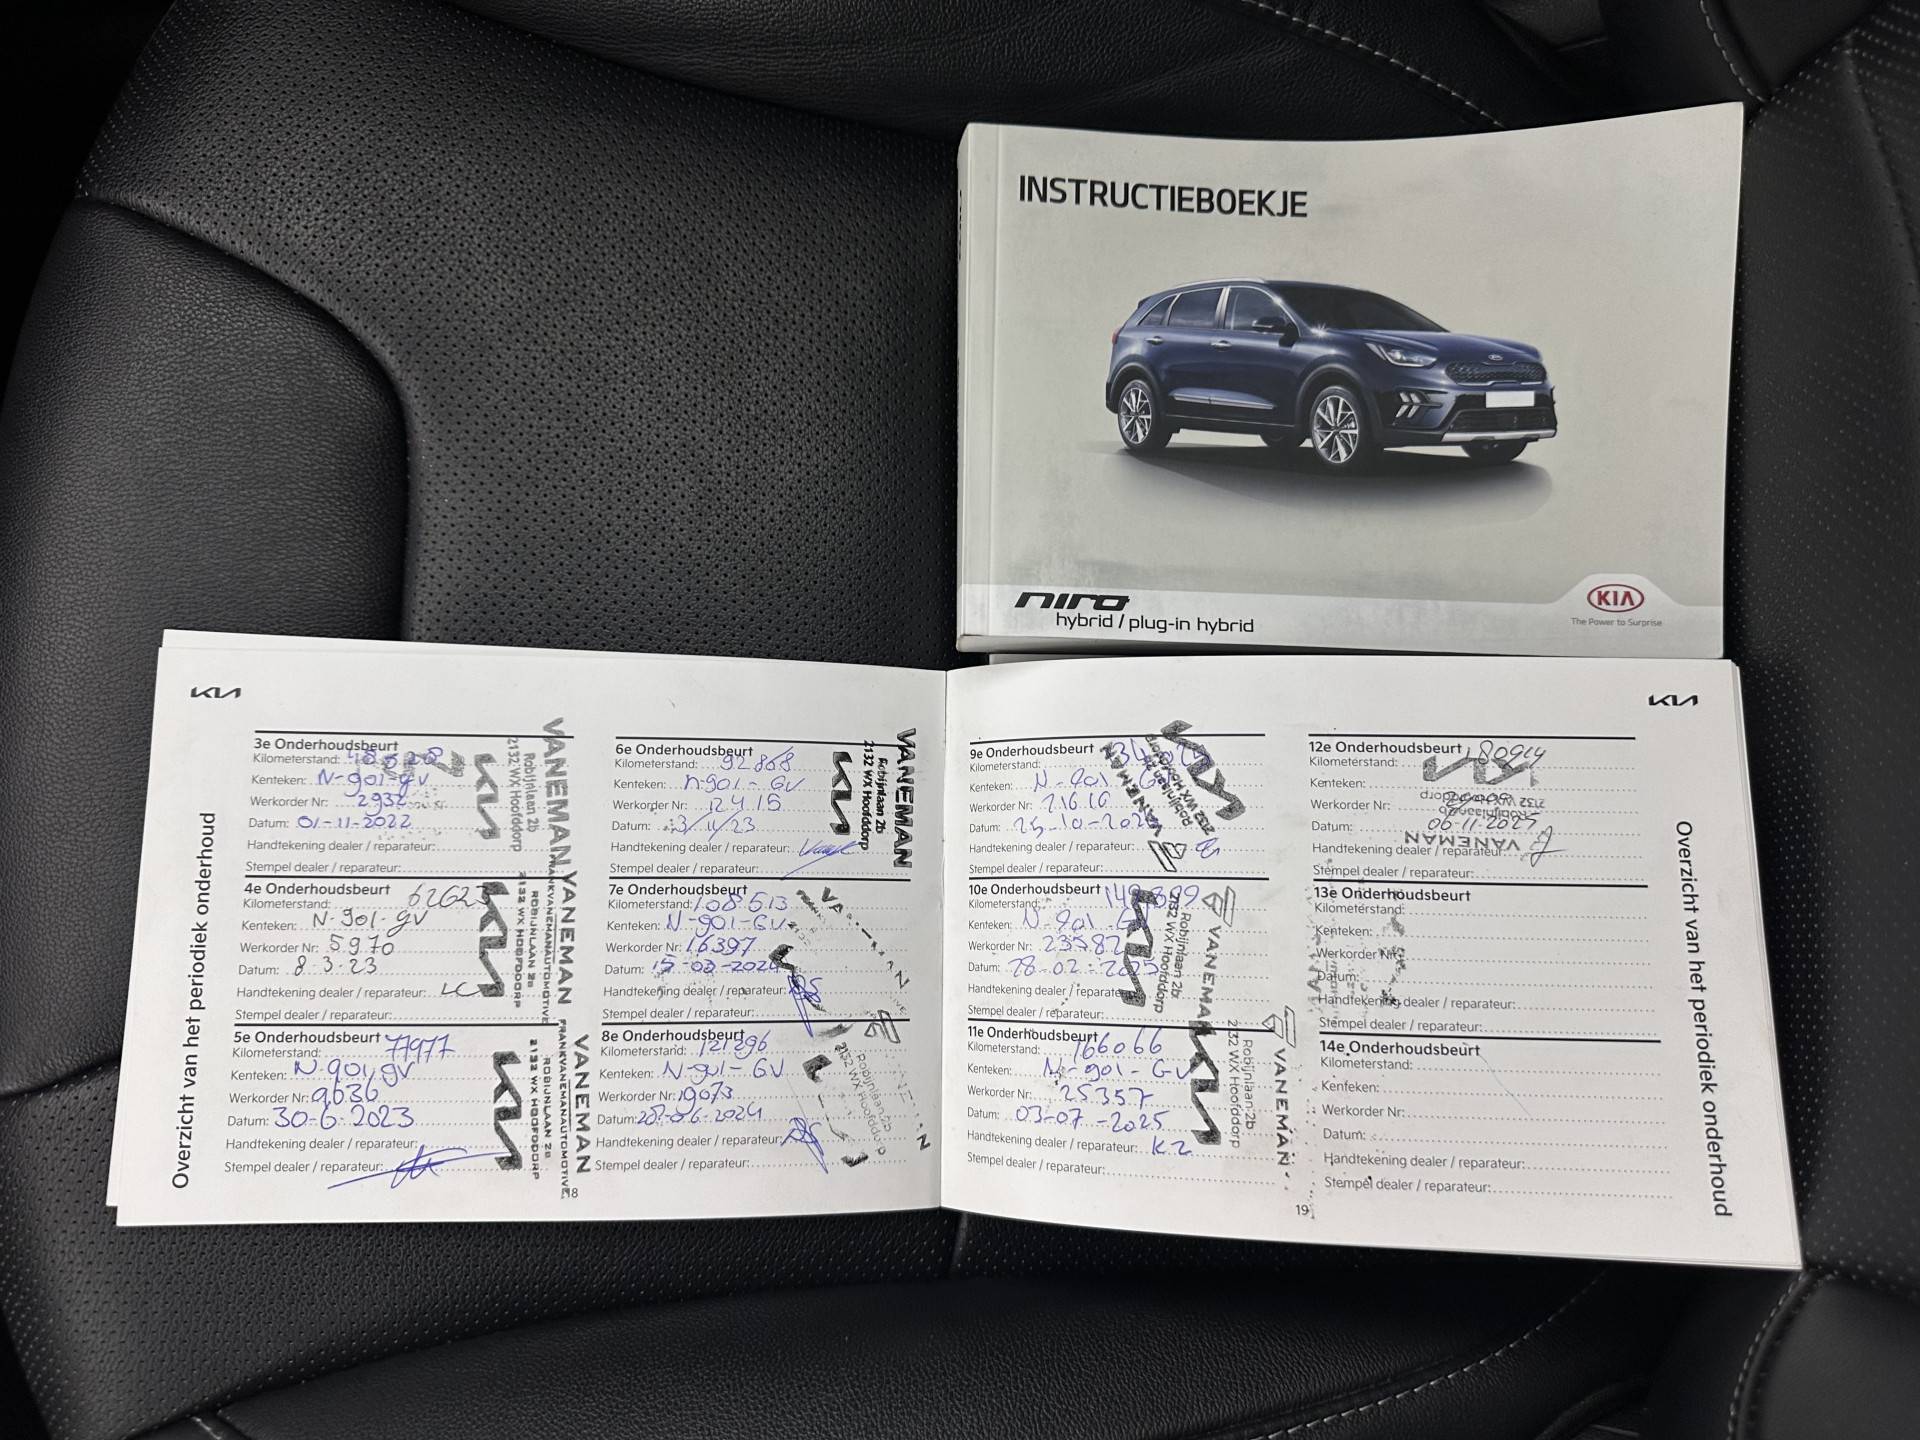 INSTRUCTIEBOEKJE
niro
hybrid / plug-in hybrid
KIA
The Power to Surprise
KIA
Overzicht van het periodiek onderhoud
3e Onderhoudsbeurt
Kilometerstand:
Kenteken: N-901-gv
Werkorder Nr: 2932
Datum: 01-11-2022
Handtekening dealer / reparateur:
Stempel dealer / reparateur:
KIA
Robijnlaan 2b
2132 WX Hoofddorp
VANEMAN
4e Onderhoudsbeurt
Kilometerstand: 62623
Kenteken: N-901-gv
Werkorder Nr: 5970
Datum: 8-3-23
Handtekening dealer / reparateur: LC
Stempel dealer / reparateur:
KIA
VANEMAN
FRANKVANEMANAUTOMOTIVE
ROBIJNLAAN 2B
2132 WX HOOFDDORP
5e Onderhoudsbeurt
Kilometerstand: 77977
Kenteken: N-901-gv
Werkorder Nr: 9636
Datum: 30-6-2023
Handtekening dealer / reparateur:
Stempel dealer / reparateur:
KIA
VANEMAN
FRANKVANEMANAUTOMOTIVE
ROBIJNLAAN 2B
2132 WX HOOFDDORP
6e Onderhoudsbeurt
Kilometerstand: 92868
Kenteken: N-901-GV
Werkorder Nr: 12415
Datum: 3/11/23
Handtekening dealer / reparateur:
Stempel dealer / reparateur:
KIA
VANEMAN
Robijnlaan 2b
2132 WX Hoofddorp
7e Onderhoudsbeurt
Kilometerstand: 108513
Kenteken: N-901-GV
Werkorder Nr: 16397
Datum: 15-03-2024
Handtekening dealer / reparateur:
Stempel dealer / reparateur:
8e Onderhoudsbeurt
Kilometerstand: 121296
Kenteken: N-901-GV
Werkorder Nr: 19073
Datum: 28-06-2024
Handtekening dealer / reparateur:
Stempel dealer / reparateur:
Robijnlaan 2b
2132 WX Hoofddorp
18
KIA
9e Onderhoudsbeurt
Kilometerstand:
Kenteken: N-901-G
Werkorder Nr: 21616
Datum: 25-10-2024
Handtekening dealer / reparateur:
Stempel dealer / reparateur:
KIA
VANEMAN
Robijnlaan 2b
2132 WX Hoofddorp
10e Onderhoudsbeurt
Kilometerstand: 149899
Kenteken: N-901-G
Werkorder Nr: 23582
Datum: 28-02-2025
Handtekening dealer / reparateur:
Stempel dealer / reparateur:
KIA
VANEMAN
Robijnlaan 2b
2132 WX Hoofddorp
11e Onderhoudsbeurt
Kilometerstand: 166066
Kenteken: N-901-GV
Werkorder Nr: 25357
Datum: 03-07-2025
Handtekening dealer / reparateur: KZ
Stempel dealer / reparateur:
KIA
VANEMAN
Robijnlaan 2b
2132 WX Hoofddorp
12e Onderhoudsbeurt
Kilometerstand: 180914
Kenteken:
Werkorder Nr:
Datum: 06-11-2025
Handtekening dealer / reparateur:
Stempel dealer / reparateur:
KIA
VANEMAN
Robijnlaan 2b
2132 WX Hoofddorp
13e Onderhoudsbeurt
Kilometerstand:
Kenteken:
Werkorder Nr:
Datum:
Handtekening dealer / reparateur:
Stempel dealer / reparateur:
14e Onderhoudsbeurt
Kilometerstand:
Kenteken:
Werkorder Nr:
Datum:
Handtekening dealer / reparateur:
Stempel dealer / reparateur:
19
Overzicht van het periodiek onderhoud